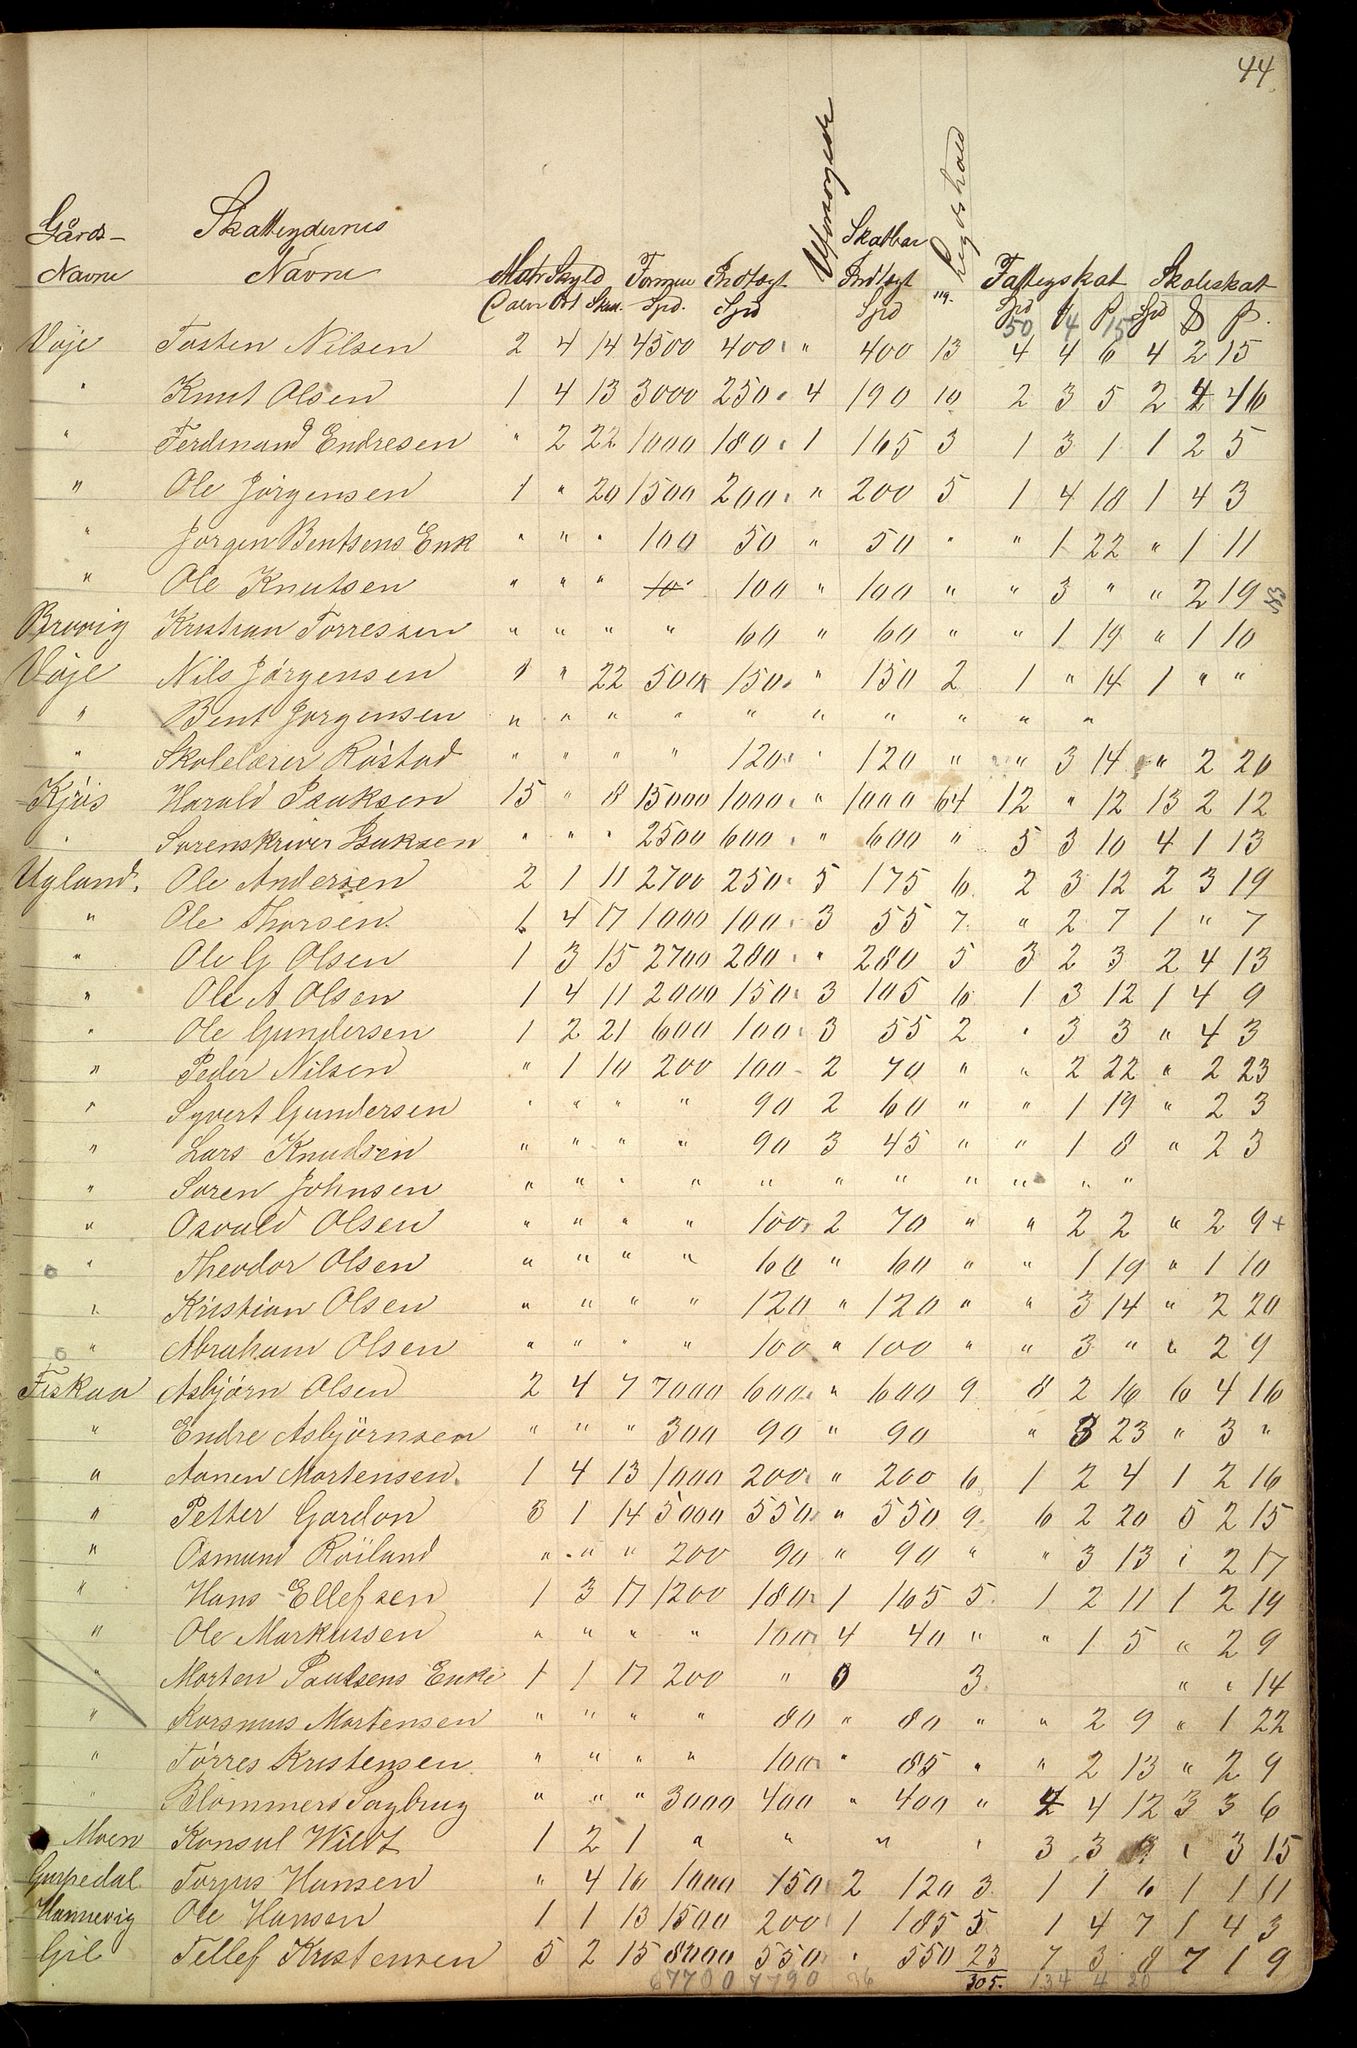 44
Gårds- Skatteydernes Uforsørgede Skatbar Legdshold
Navne Navne Matr Skyld Formue Indtægt Indtægt Fattigskat Skoleskat
Daler Ort Skill. Spd. Spd Spd Spd Spd
50 4 15
Vøje Tosten Nilsen 2 4 14 4500 400 " 400 13 4 4 6 4 2 15
" Knut Olsen 1 4 13 3000 250 4 190 10 2 3 5 2 4 16
" Ferdinand Endresen " 2 22 1000 180 1 165 3 1 3 1 1 2 5
" Ole Jørgensen 1 " 20 1500 200 " 200 5 1 4 18 1 4 3
" Jørgen Bentsens Enk " " " 100 50 " 50 " " 1 22 " 1 11
" Ole Knutsen " " " 10 100 " 100 " " 3 " " 2 19
Brovig Kristian Torressen " " " " 60 " 60 " " 1 19 " 1 10
Vøje Nils Jørgensen " " 22 500 150 " 150 2 1 " 14 1 " "
" Bent Jørgensen " " " " " " " " " "
" Skolelærer Røstad " " " " 120 " 120 " " 3 14 " 2 20
Kjøis Harald Isaksen 15 " 8 15000 1000 " 1000 64 12 " 12 13 2 12
" Sorenskriver Isaksen " " " 2500 600 " 600 " 5 3 10 4 1 13
Ugland. Ole Andersen 2 1 11 2700 250 5 175 6 2 3 12 2 3 19
" Ole Thorsen 1 4 17 1000 100 3 55 7 " 2 7 1 " 7
" Ole G Olsen 1 3 15 2700 280 " 280 5 3 2 3 2 4 13
" Ole A Olsen 1 4 11 2000 150 3 105 6 1 3 12 1 4 9
" Ole Gundersen 1 2 21 600 100 3 55 2 " 3 3 " 4 3
" Peder Nilsen " 1 10 200 100 2 70 " " 2 22 " 2 23
" Syvert Gundersen " " " " 90 2 60 " " 1 19 " 2 3
" Lars Knudsen " " " " 90 3 45 " " 1 8 " 2 3
" Soren Johnsen " " " " " " " " " " "
" Osvald Olsen " " " " 100 2 70 " " 2 2 " 2 9 +
" Theodor Olsen " " " " 60 " 60 " " 1 19 " 1 10
" Kristian Olsen " " " " 120 " 120 " " 3 14 " 2 20
" Abraham Olsen " " " " 100 " 100 " " 3 " " 2 9
Fiskaa Asbjørn Olsen 2 4 7 7000 600 " 600 9 8 2 16 6 4 16
" Endre Asbjörnsen " " " 300 90 " 90 " 3 23 " 3 "
" Aanen Mortensen 1 4 13 1000 200 " 200 6 1 2 4 1 2 16
" Petter Gordon 3 1 14 5000 550 " 550 9 6 2 20 5 2 15
" Osmund Röiland " " " 200 90 " 90 " " 3 13 " 2 17
" Hans Ellefsen 1 3 17 1200 180 1 165 5 1 2 11 1 2 19
" Ole Markussen " " " " 100 4 40 " " 1 5 " 2 9
" Morten Paulsens Enke 1 1 17 200 " 0 3 " " 14
" Rasmus Mortensen " " " " 80 " 80 " " 2 9 " 1 22
" Törres Kristensen " " " " 100 " 85 " " 2 13 " 2 9
" Blommers Sagbrug " " " 3000 400 " 400 " 4 4 12 3 3 6
Moen Konsul Wildt 1 2 1 " " " " 3 3 " 3 15
Gaupedal Torjus Hansen " 4 16 1000 150 2 120 3 1 1 6 1 1 11
Hannevig Ole Hansen 1 1 13 1500 200 1 185 5 1 4 7 1 4 3
Gil Tellef Kristensen 5 2 15 8000 550 " 550 23 7 3 8 7 1 9
67700 7790 36 305. 134 4 20